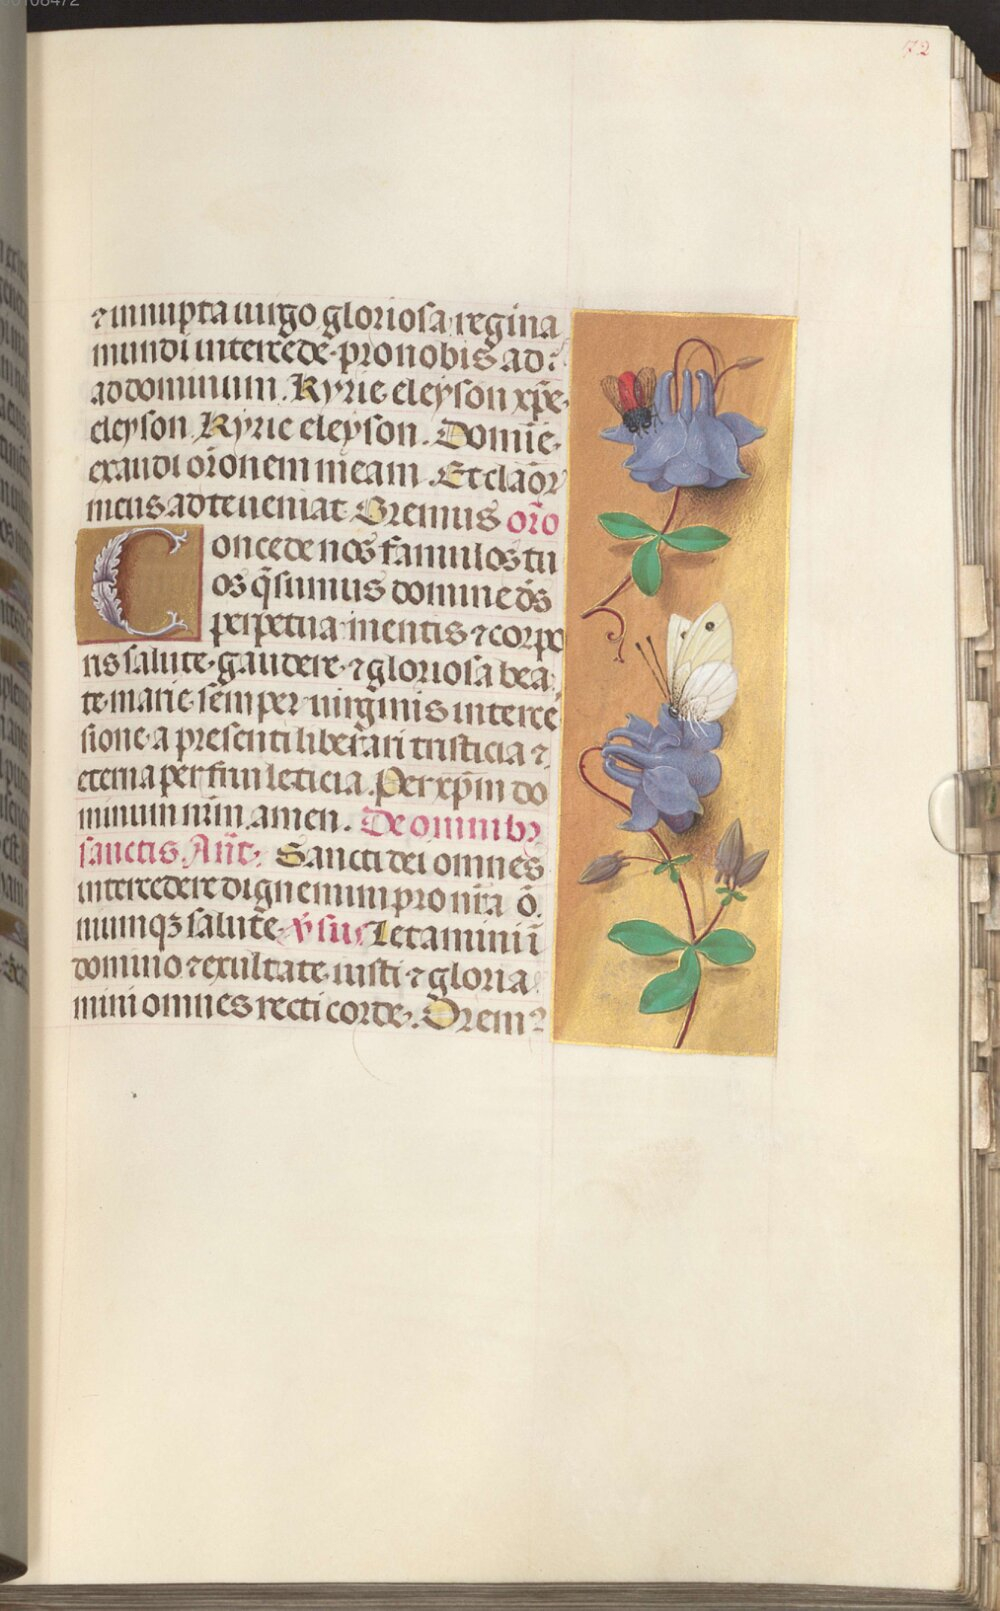 72
⁊ innupta uirgo gloriosa regina
mundi intercede pro nobis ad
ad dominum. Kyrie eleyson xp̄e
eleyson. Kyrie eleyson. Domīe
exaudi or̄onem meam. Et clāor
meus ad te ueniat. Oremus or̄o
Concede nos famulos tu
os q̄sumus domine ds̄
perpetua mentis ⁊ corpo
ris salute gaudere ⁊ gloriosa bea
te marie semper uirginis interce
sione a presenti liberari tristicia ⁊
eterna perfrui leticia. Per xp̄m do
minum nr̄m amen. De omnibꝫ
sanctis Ant̄. Sancti dei omnes
intercedere dignemini pro nr̄a ō
niumqꝫ salute. v̄sus Letamini ī
domino ⁊ exultate iusti ⁊ gloria
mini omnes recti corde. Orem⁹